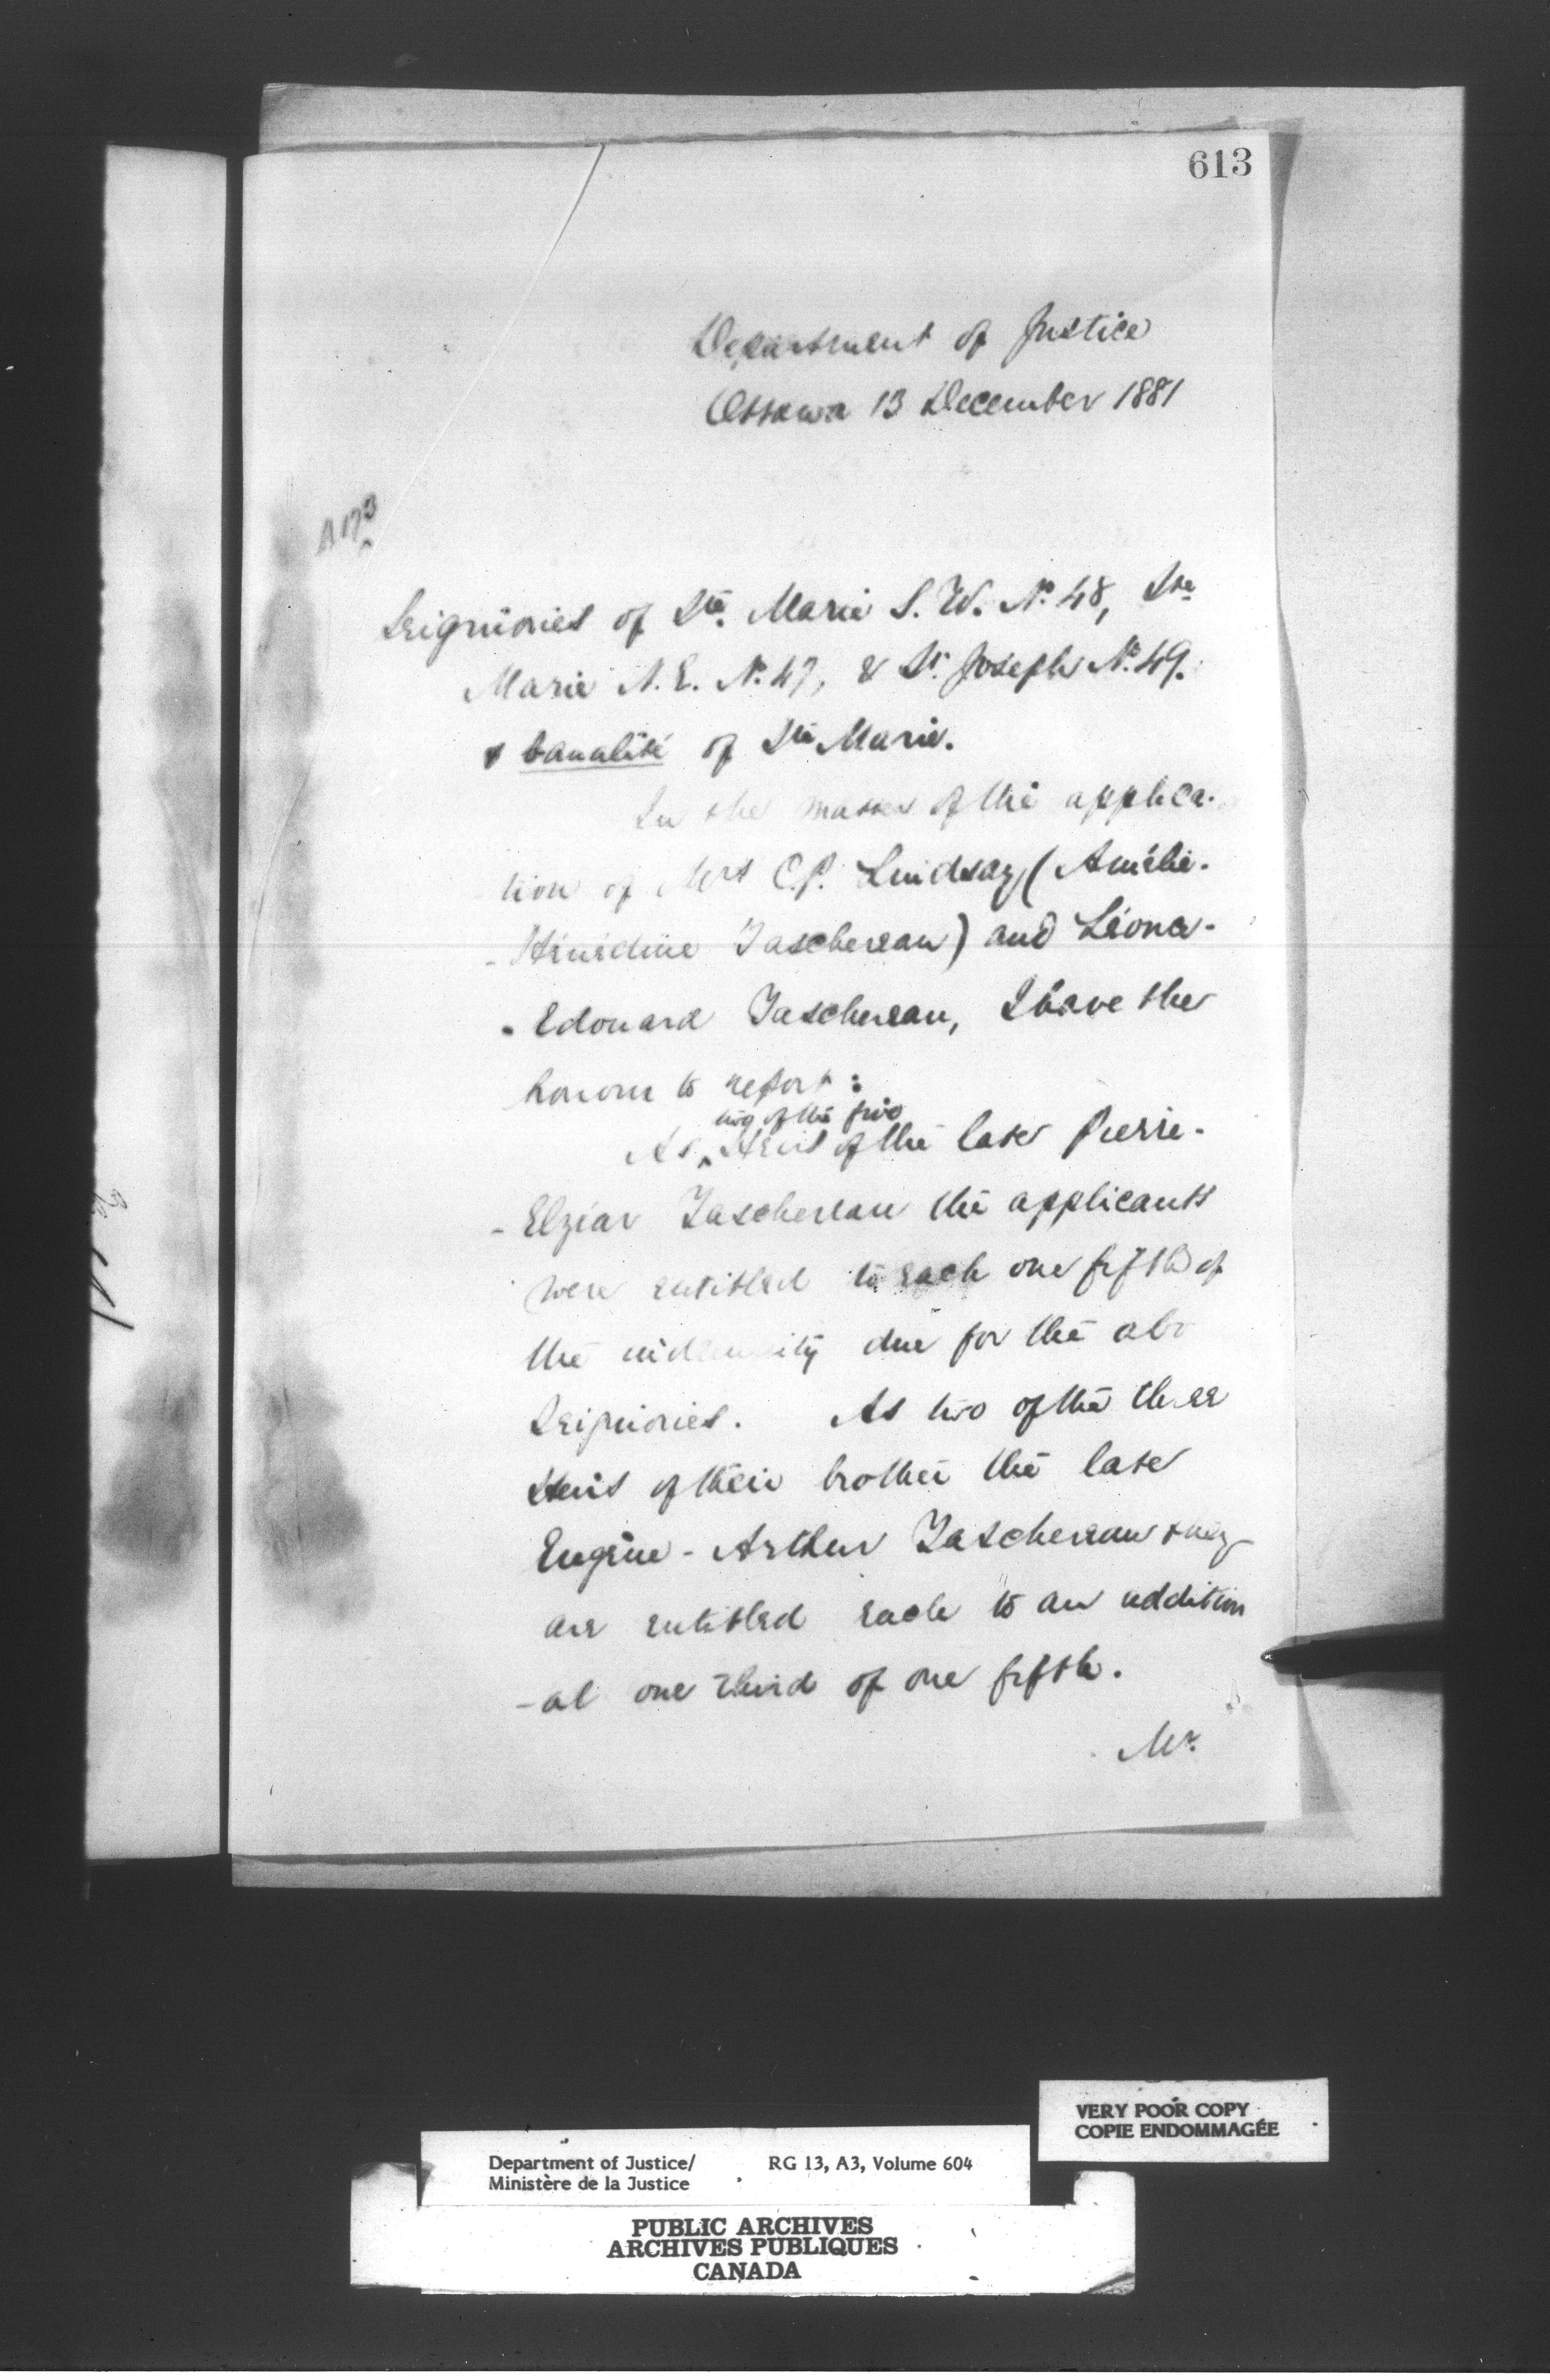 613
Department of Justice
Ottawa 13 December 1881
A 173
Seigniories of Ste. Marie S. W. No. 48, Ste
Marie N. E. No. 47, & St. Joseph No. 49.
& banalité of Ste Marie.
In the matter of the applica-
tion of Mrs C. P. Lindsay (Amélie-
-Hénédine Taschereau) and Léonce-
-Edouard Taschereau, I have the
honour to report :
two of the five
As ‸ Heirs of the late Pierre-
-Elzéar Taschereau the applicants
were entitled to each one fifth of
the indemnity due for the abo
Seigniories. As two of the three
Heirs of their brother the late
Eugène-Arthur Taschereau they
are entitled each to an addition
-al one third of one fifth.
Mr.
VERY POOR COPY
COPIE ENDOMMAGÉE
Department of Justice/ RG 13, A3, Volume 604
Ministère de la Justice
PUBLIC ARCHIVES
ARCHIVES PUBLIQUES
CANADA